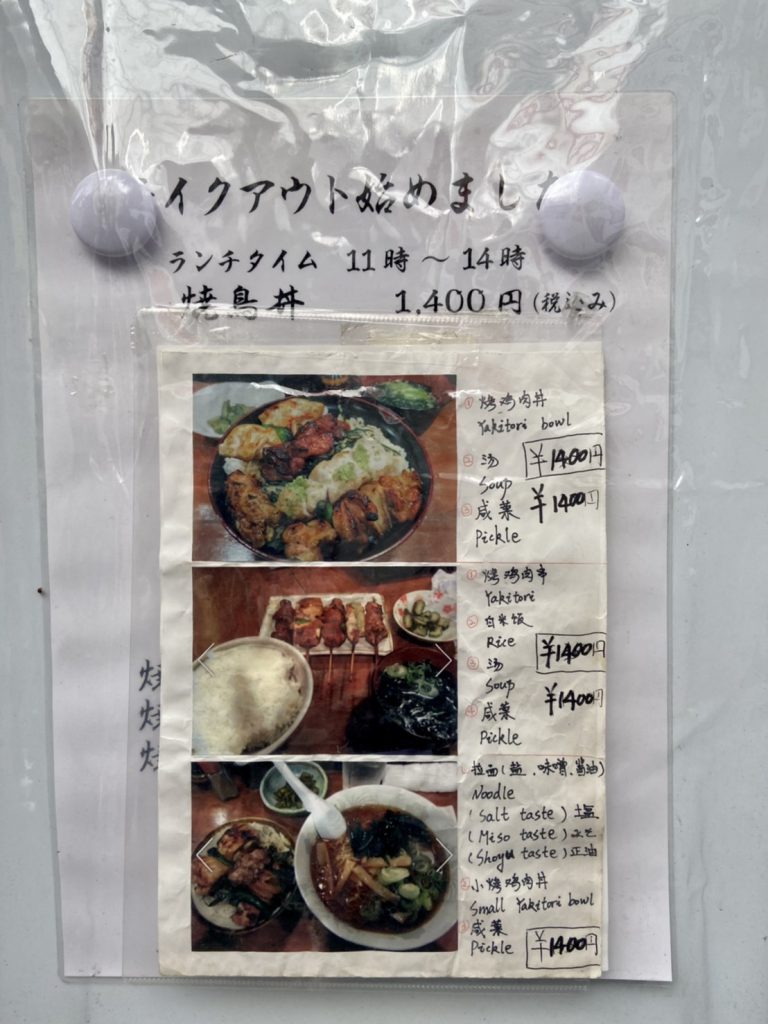 イクアウト始めました
ランチタイム 11時～14時
焼鳥丼 1,400円(税込み)
① 烤鸡肉丼
Yakitori bowl
② 汤 ¥1400円
Soup
③ 咸菜 ¥1400円
Pickle
① 烤鸡肉串
Yakitori
② 白米饭
Rice
③ 汤 ¥1400円
Soup
④ 咸菜 ¥1400円
Pickle
① 拉面(盐、味噌、酱油)
Noodle
(Salt taste) 塩
(Miso taste) みそ
(Shoyu taste) 正油
② 小烤鸡肉丼
Small Yakitori bowl
③ 咸菜
Pickle ¥1400円